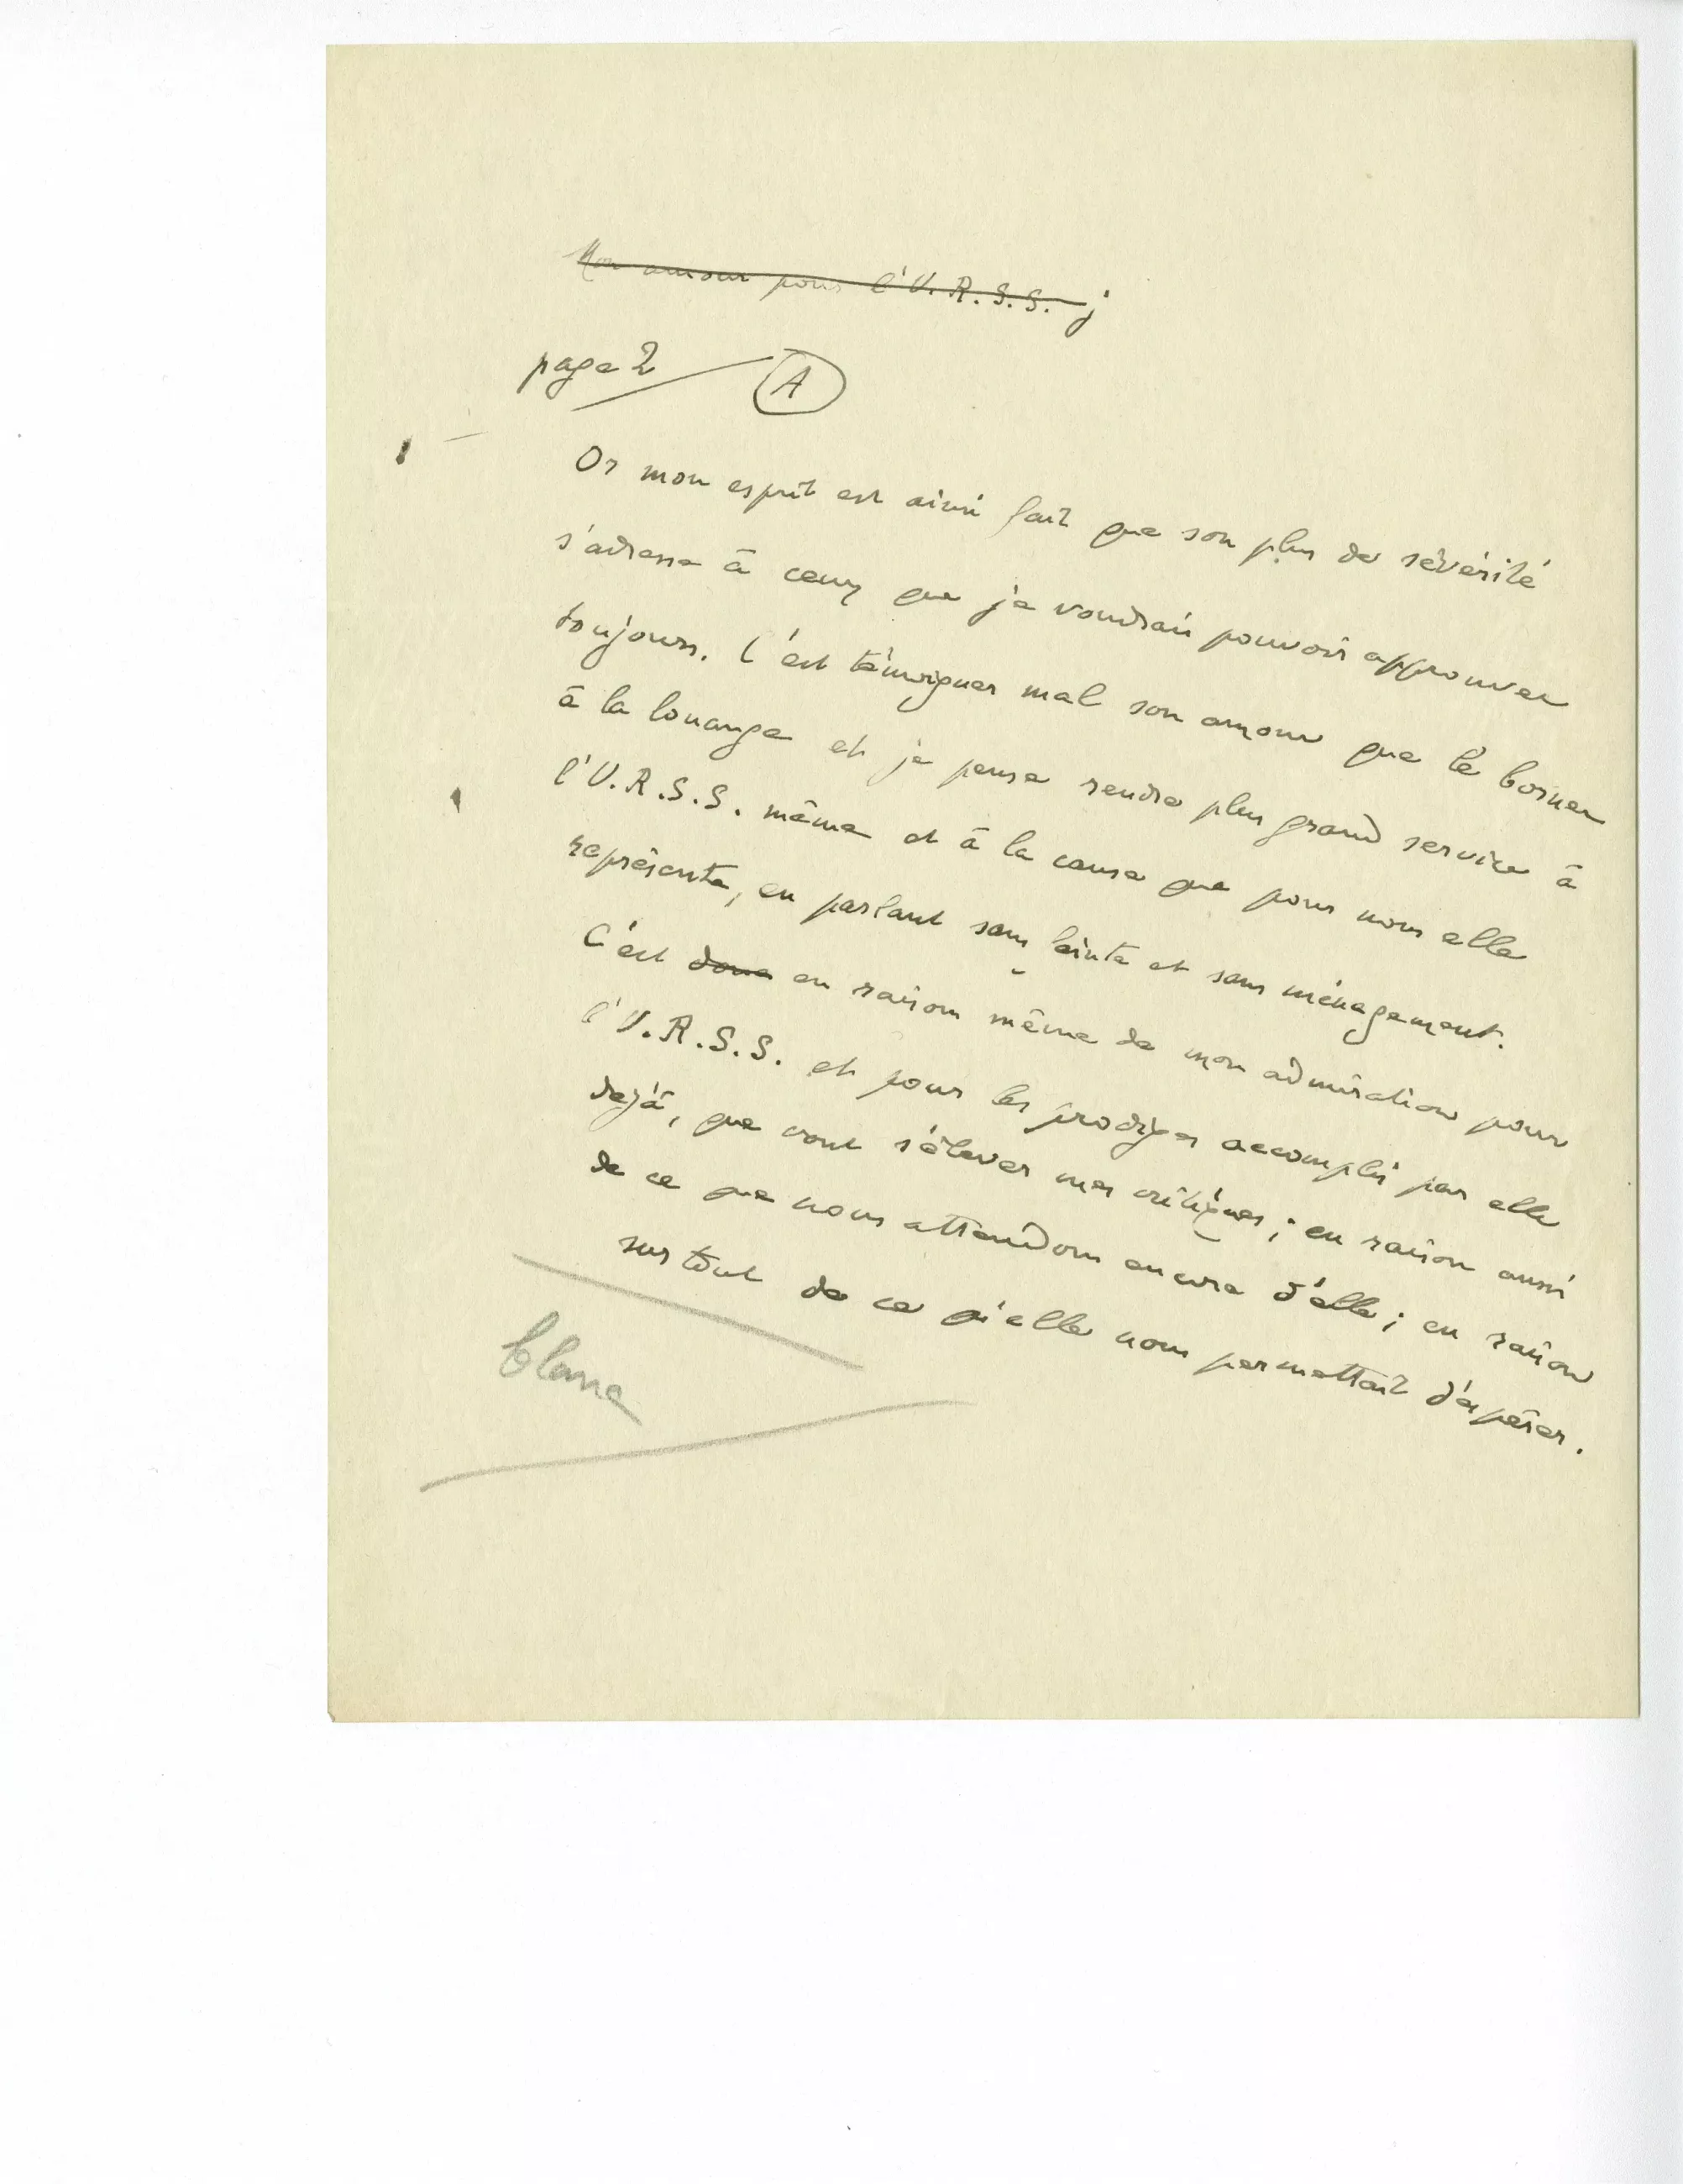 Mon amour pour l'U.R.S.S. j
page 2
A
Or mon esprit est ainsi fait que son plus de sévérité
s'adresse à ceux que je voudrais pouvoir approuver
toujours. C'est témoigner mal son amour que le borner
à la louange et je pense rendre plus grand service à
l'U.R.S.S. même et à la cause que pour nous elle
représente, en parlant sans feinte et sans ménagement.
C'est donc en raison même de mon admiration pour
l'U.R.S.S. et pour les prodiges accomplis par elle
déjà, que vont s'élever mes critiques ; en raison aussi
de ce que nous attendons encore d'elle ; en raison
surtout de ce qu'elle nous permettait d'espérer.
blanc